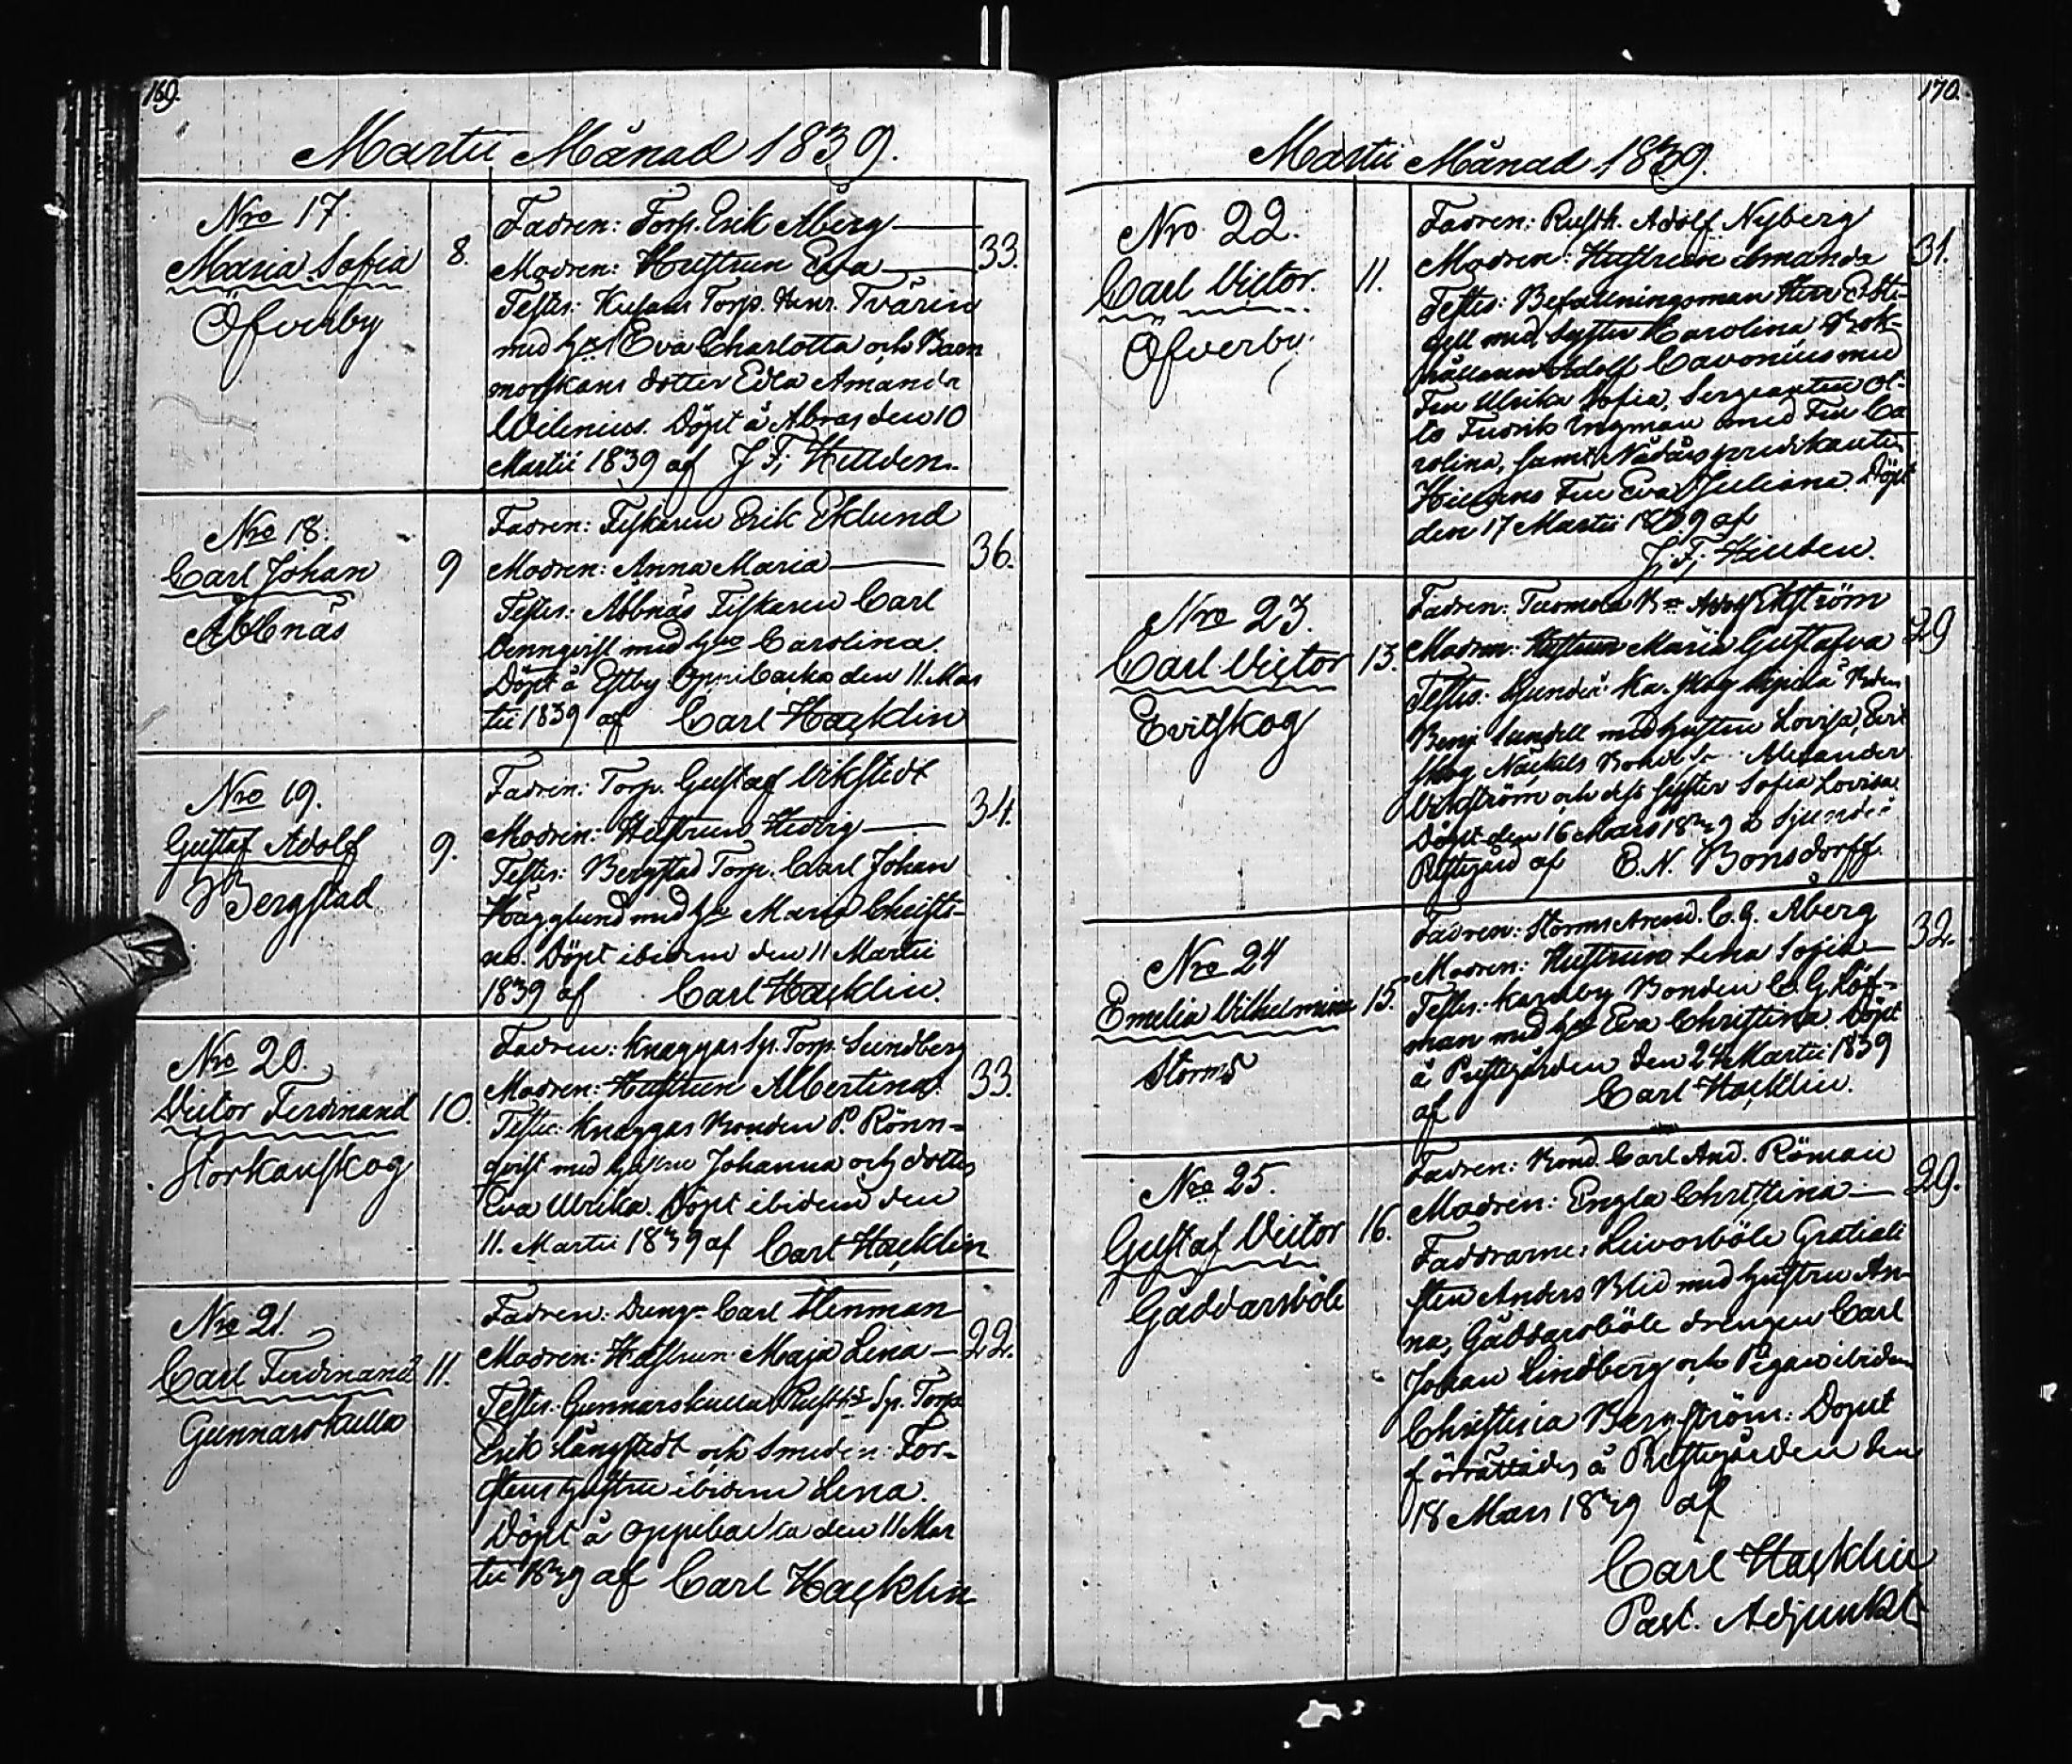 169.
Martii Månad 1839.
Nro 17.
Maria Sofia
Öfverby
8.
Fadren: Torp. Erik Åberg
Modren: Hustrun Eva
33.
Testes: Torp. Henr. Tvärin
med h. Eva Charlotta och Barn
morskans dotter Edla Amanda
Wilenius. Döpt å Abras den 10
Martii 1839 af J. F. Hulden.
Nro 18.
Carl Johan
Abbnäs
9
Fadren: Fiskaren Erik Eklund
Modren: Anna Maria
36.
Testes: Abbnäs Fiskaren Carl
Vennqvist med hus Carolina.
Döpt å Estby Oppibacka den 11 Mar
tii 1839 af Carl Hacklin
Nro 19.
Gustaf Adolf
Bergstad
9.
Fadren: Torp. Gustaf Vikstedt
Modren: Hustrun Hedvig
34.
Testes: Bergstad Torp. Carl Johan
Hägglund med hu Maria Christi-
na. Döpt ibidem den 11 Martii
1839 af Carl Hacklin.
Nro 20.
Victor Ferdinand
Storkanskog
10.
Fadren: Knaggas Sp. Torp. Lindberg
Modren: Hustrun Albertina.
33.
Testes: Knaggas Bonden P. Rönn-
qvist med hustru Johanna och dotter
Eva Ulrika. Döpt ibidem den
11. Martii 1839 af Carl Hacklin
Nro 21.
Carl Ferdinand
Gunnarskulla
11.
Fadren: Dräng. Carl Stenman
Modren: Hustrun Maja Lena
22.
Testes: Gunnarskulla Rusth:s Sp. Torp.
Erik Långstedt och Smeden For-
stens hustru ibidem Lena.
Döpt å Oppibacka den 11 Mar
tii 1839 af Carl Hacklin
170.
Martii Månad 1839.
Nro. 22.
Carl Victor.
Öfverby.
11.
Fadren: Rusth. Adolf Nyberg
Modren: Hustrun Amanda
31.
Testes: Befallningsman Herr
med syster Carolina Bok-
hållaren Adolf Cavonius med
Fru Ulrika Sofia, Sergeanten Ot-
to Fredrik Ungman med Fru Ca
rolina, samt Nådårspredikanten
Huldens Fru Eva Juliana. Döpt
den 17 Martii 1839 af
J. F. Hulden.
Nro 23.
Carl Victor
Evitskog
13.
Fadren: Tuomola B. Adolf Ekström
Modren: Hustrun Maria Gustafva
29
Testes: Sjundeå Ka. skog Bden
Benj. Sundell med hustru Lovisa, Evit
skog Näckels Alexander
Vikström och dess syster Sofia Lovisa.
Döpt den 16 Mars 1839 å Sjundeå
Prestgård af E. N. Bonsdorff.
Nro 24
Emelia Vilhelmina
Storms
15.
Fadren: Storms Arend. C. G. Åberg
Modren: Hustrun Lena Sofia
32.
Testes: Karuby Bonden C. G. Löf-
man med hu Eva Christina. Döpt
å Prestgården den 24 Martii 1839
af Carl Hacklin.
Nro 25.
Gustaf Victor
Gäddarsböle
16.
Fadren: Bond. Carl And. Röman
Modren: Engla Christina
29.
Faddrarne: Leivosböle Gratiali
sten Anders Blid med hustru An-
na, Gäddarsböle drengen Carl
Johan Lindberg och Pigan ibidem
Christina Bergström: Dopet
förrättades å Prestgården den
18 Mars 1839 af
Carl Hacklin
Past. Adjunkt